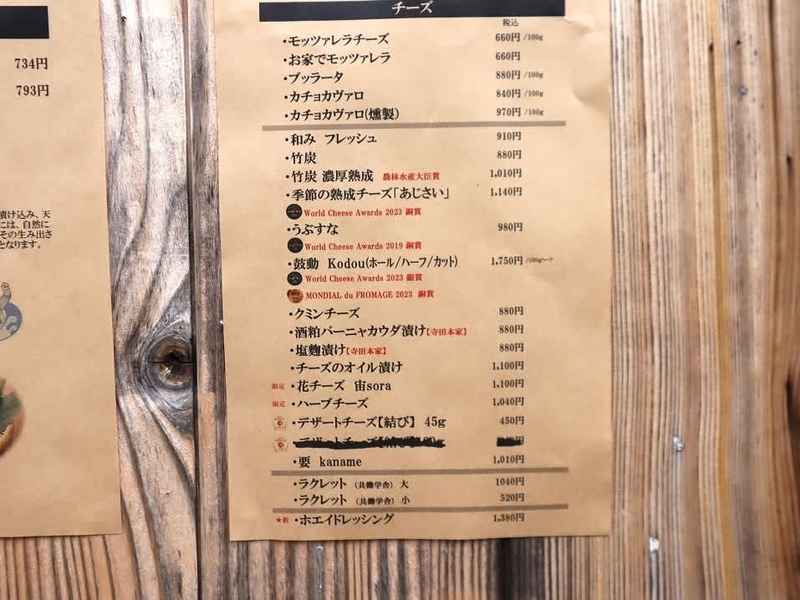 734円
793円
漬け込み、天
には、自然に
その生み出さ
となります。
チーズ
税込
・モッツァレラチーズ 660円 /100g
・お家でモッツァレラ 660円
・ブッラータ 880円 /100g
・カチョカヴァロ 840円 /100g
・カチョカヴァロ(燻製) 970円 /100g
・和み フレッシュ 910円
・竹炭 880円
・竹炭 濃厚熟成 農林水産大臣賞 1,010円
・季節の熟成チーズ「あじさい」 1,140円
World Cheese Awards 2023 銅賞
・うぶすな 980円
World Cheese Awards 2019 銅賞
・鼓動 Kodou(ホール/ハーフ/カット) 1,750円
World Cheese Awards 2023 銀賞
MONDIAL du FROMAGE 2023 銅賞
・クミンチーズ 880円
・酒粕バーニャカウダ漬け【寺田本家】 880円
・塩麹漬け【寺田本家】 880円
・チーズのオイル漬け 1,100円
限定 ・花チーズ 宙sora 1,100円
限定 ・ハーブチーズ 1,040円
・デザートチーズ【結び】 45g 450円
・要 kaname 1,010円
・ラクレット (共働学舎) 大 1040円
・ラクレット (共働学舎) 小 520円
★新 ・ホエイドレッシング 1,380円